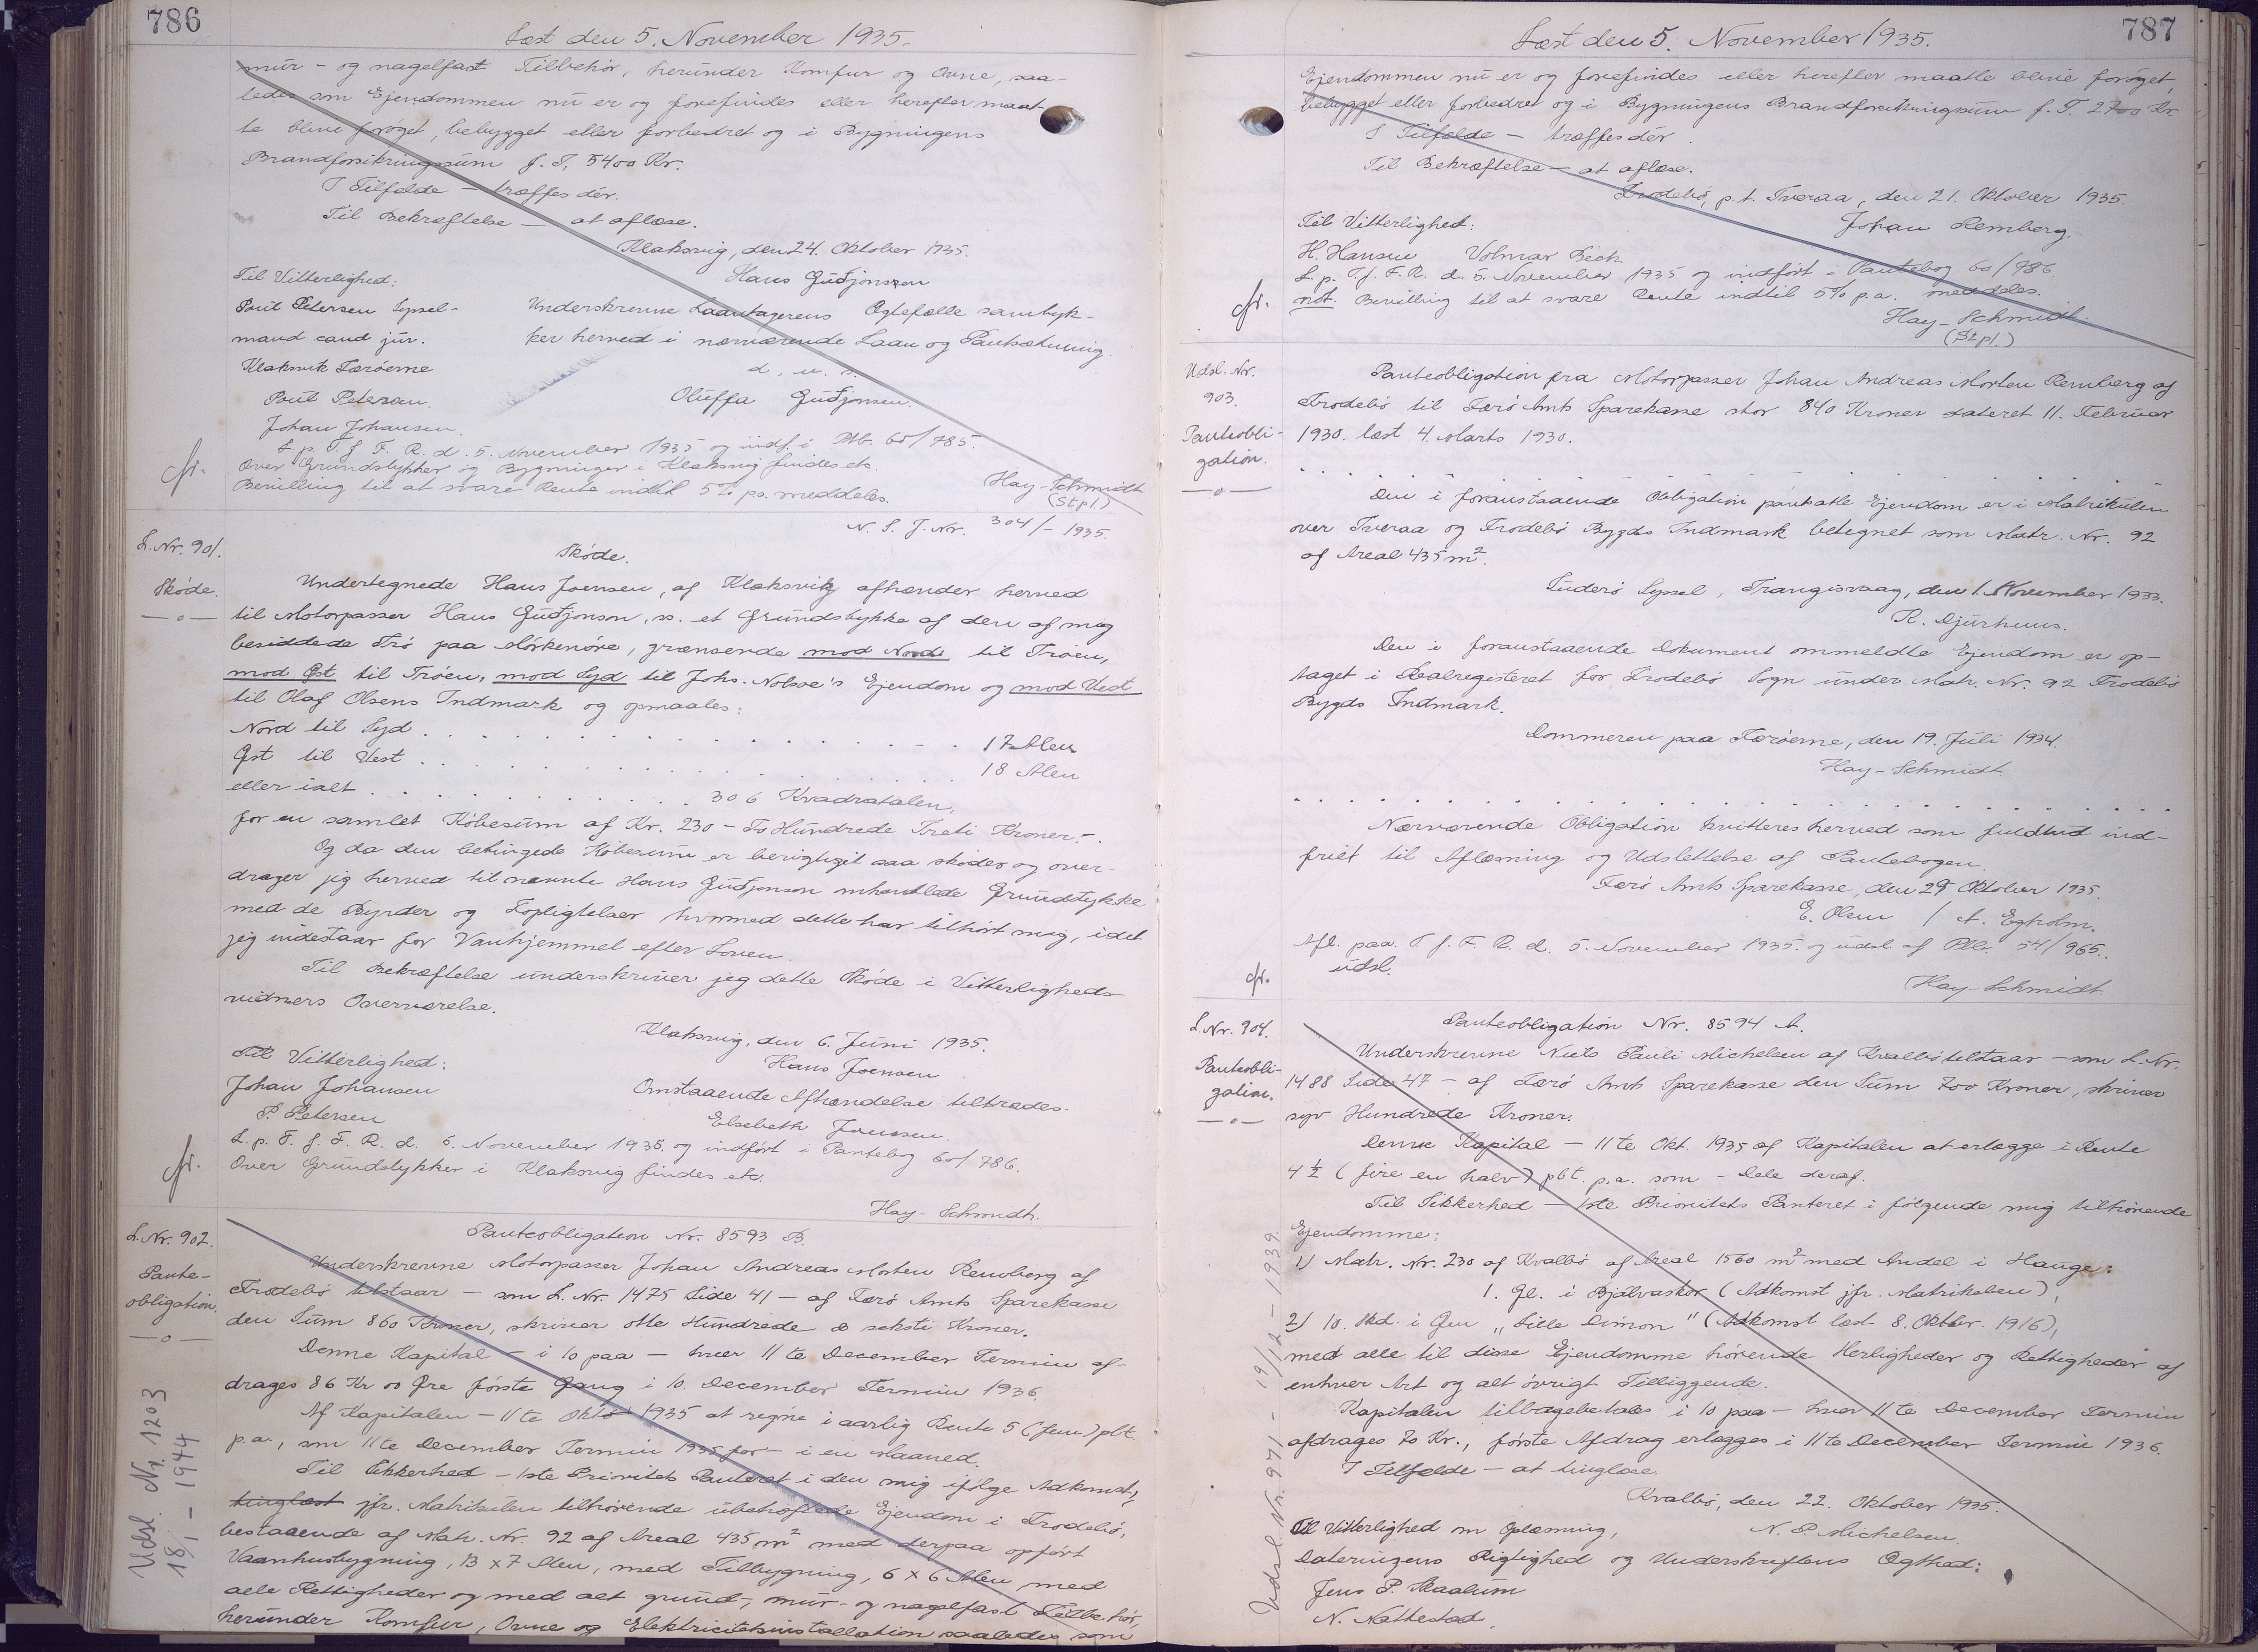 786
Læst den 5. November 1935.
mur- og nagelfast Tilbehør, herunder Komfur og Ovne, saa-
ledes som Ejendommen nu er og forefindes eller herefter maat-
te blive forøget, bebygget eller forbedret og i Bygningens
Brandforsikringssum f. T. 5400 Kr.
I Tilfælde — træffes dér.
Til Bekræftelse — at aflæse.
Klaksvig, den 24. Oktober 1935.
Til Vitterlighed: Hans Guðjonsson
Poul Petersen Syssel- Underskrevne Laantagerens Ægtefælle samtyk-
mand cand jur. ker herved i nærværende Laan og Pantsætning.
Klaksvik Færøerne d. u. s.
Poul Petersen. Oluffa Guðjonsen.
Johan Johansen.
L. p. T. f. F. R. d. 5. November 1935 og indf. i Pb. 60/785.
cfr. Over Grundstykker og Bygninger i Klaksvig findes etc.
Bevilling til at svare Rente indtil 5% pa. meddeles.
Hay-Schmidt
(Stpl.)
N. S. J. Nr. 304/- 1935.
L. Nr. 901.
Skøde.
—o—
Skøde.
Undertegnede Hans Joensen, af Klaksvik afhænder herved
til Motorpasser Hans Guðjonson, ss. et Grundstykke af den af mig
besiddede Trö paa Mörkenøre, grænsende mod Nord til Tröen,
mod Øst til Tröen, mod Syd til Johs. Nolsøe's Ejendom og mod Vest
til Olaf Olsens Indmark og opmaales:
Nord til Syd . . . . . . . . . . 17 Alen
Øst til Vest . . . . . . . . . . 18 Alen
eller ialt . . . . . . . . . . 306 Kvadratalen,
for en samlet Købesum af Kr. 230 - To Hundrede Treti Kroner -.
Og da den betingede Købesum er berigtiget saa skøder og over-
drager jeg herved til nævnte Hans Guðjonson omhandlede Grundstykke
med de Byrder og Forpligtelser hvormed dette har tilhørt mig, idet
jeg indestaar for Vanhjemmel efter Loven.
Til Bekræftelse underskriver jeg dette Skøde i Vitterligheds-
vidners Overværelse.
Klaksvig, den 6. Juni 1935.
Til Vitterlighed: Hans Joensen
Johan Johansen Omstaaende Afhændelse tiltrædes.
P. Petersen Elsebeth Joensen.
L. p. T. f. F. R. d. 5. November 1935. og indført i Pantebog 60/786.
cfr. Over Grundstykker i Klaksvig findes etc.
Hay-Schmidt.
L. Nr. 902.
Pante-
obligation.
—o—
Udsl. Nr. 1203
18/1 - 1944
Panteobligation Nr. 8593 B.
Underskrevne Motorpasser Johan Andreas Morten Remberg af
Frodebø tilstaar — som L. Nr. 1475 Side 41 — af Færø Amts Sparekasse
den Sum 860 Kroner, skriver otte Hundrede & seksti Kroner.
Denne Kapital — i 10 paa — hver 11te December Termin af-
drages 86 Kr 00 Øre første Gang i 10. December Termin 1936.
Af Kapitalen — 11te Oktb 1935 at regne i aarlig Rente 5 (fem) pCt
p.a., som 11te December Termin 1935 for — i en Maaned.
Til Sikkerhed — 1ste Prioritets Panteret i den mig ifølge Adkomst,
tinglæst jfr. Matrikulen tilhørende ubehæftede Ejendom i Frodebø,
bestaaende af Matr. Nr. 92 af Areal 435 m² med derpaa opført
Vaanhusbygning, 13 x 7 Alen, med Tilbygning, 6 x 6 Alen med
alle Rettigheder og med alt grund-, mur- og nagelfast Tilbehør,
herunder Komfur, Ovne og Elektricitetsinstallation saaledes som
787
Læst den 5. November 1935.
Ejendommen nu er og forefindes eller herefter maatte blive forøget,
bebygget eller forbedret og i Bygningens Brandforsikringssum f. T. 2700 Kr.
I Tilfælde — træffes dér.
Til Bekræftelse — at aflæse.
Frodebø, p. t. Tveraa, den 21. Oktober 1935.
Til Vitterlighed: Johan Remberg.
H. Hansen Volmar Beck
L. p. T. f. F. R. d. 5. November 1935 og indført i Pantebog 60/786.
cfr. not. Bevilling til at svare Rente indtil 5% p.a. meddeles.
Hay-Schmidt.
(Stpl.)
Udsl. Nr.
903.
Panteobli-
gation.
—o—
Panteobligation fra Motorpasser Johan Andreas Morten Remberg af
Frodebø til Færø Amts Sparekasse stor 840 Kroner dateret 11. Februar
1930. læst 4. Marts 1930.
. . . . . . . . . .
Den i foranstaaende Obligation pantsatte Ejendom er i Matrikulen
over Tveraa og Frodebø Bygds Indmark betegnet som Matr. Nr. 92
af Areal 435 m².
Suderø Syssel, Trangisvaag, den 1. November 1933.
R. Djurhuus.
Den i foranstaaende Dokument ommeldte Ejendom er op-
taget i Realregisteret for Frodebø Sogn under Matr. Nr. 92 Frodebø
Bygds Indmark.
Dommeren paa Færøerne, den 19. Juli 1934.
Hay-Schmidt
. . . . . . . . . .
Nærværende Obligation kvitteres herved som fuldtud ind-
friet til Aflæsning og Udslettelse af Pantebogen.
Færø Amts Sparekasse, den 29 Oktober 1935.
E. Olsen / A. Egholm.
Afl. paa T. f. F. R. d. 5. November 1935. og udsl. af Pb. 54/965.
cfr. udsl.
Hay-Schmidt
L. Nr. 904.
Panteobli-
gation.
—o—
Udsl. Nr. 971 - 19/12 - 1939.
Panteobligation Nr. 8594 A.
Underskrevne Niels Pauli Michelsen af Kvalbø tilstaar — som L. Nr.
1488 Side 47 — af Færø Amts Sparekasse den Sum 700 Kroner, skriver
syv Hundrede Kroner.
Denne Kapital — 11te Okt. 1935 af Kapitalen at erlægge i Rente
4 ½ (fire en halv) pCt. p.a. som — Dele deraf.
Til Sikkerhed — 1ste Prioritets Panteret i følgende mig tilhørende
Ejendomme:
1) Matr. Nr. 230 af Kvalbø af Areal 1560 m² med Andel i Hauge:
1. Gl. i Bjálvaskor (Adkomst jfr. Matrikelen),
2) 10. Skd. i Øen „Lille Dimon" (Adkomst læst 8. Oktbr. 1916),
med alle til disse Ejendomme hørende Herligheder og Rettigheder af
enhver Art og alt øvrigt Tilliggende.
Kapitalen tilbagebetales i 10 paa — hver 11te December Termin
afdrages 70 Kr., første Afdrag erlægges i 11te December Termin 1936.
I Tilfælde — at tinglæse.
Kvalbø, den 22. Oktober 1935.
Til Vitterlighed om Oplæsning, N. P. Michelsen.
Dateringens Rigtighed og Underskriftens Ægthed:
Jens P. Skaalum
N. Nattestad.